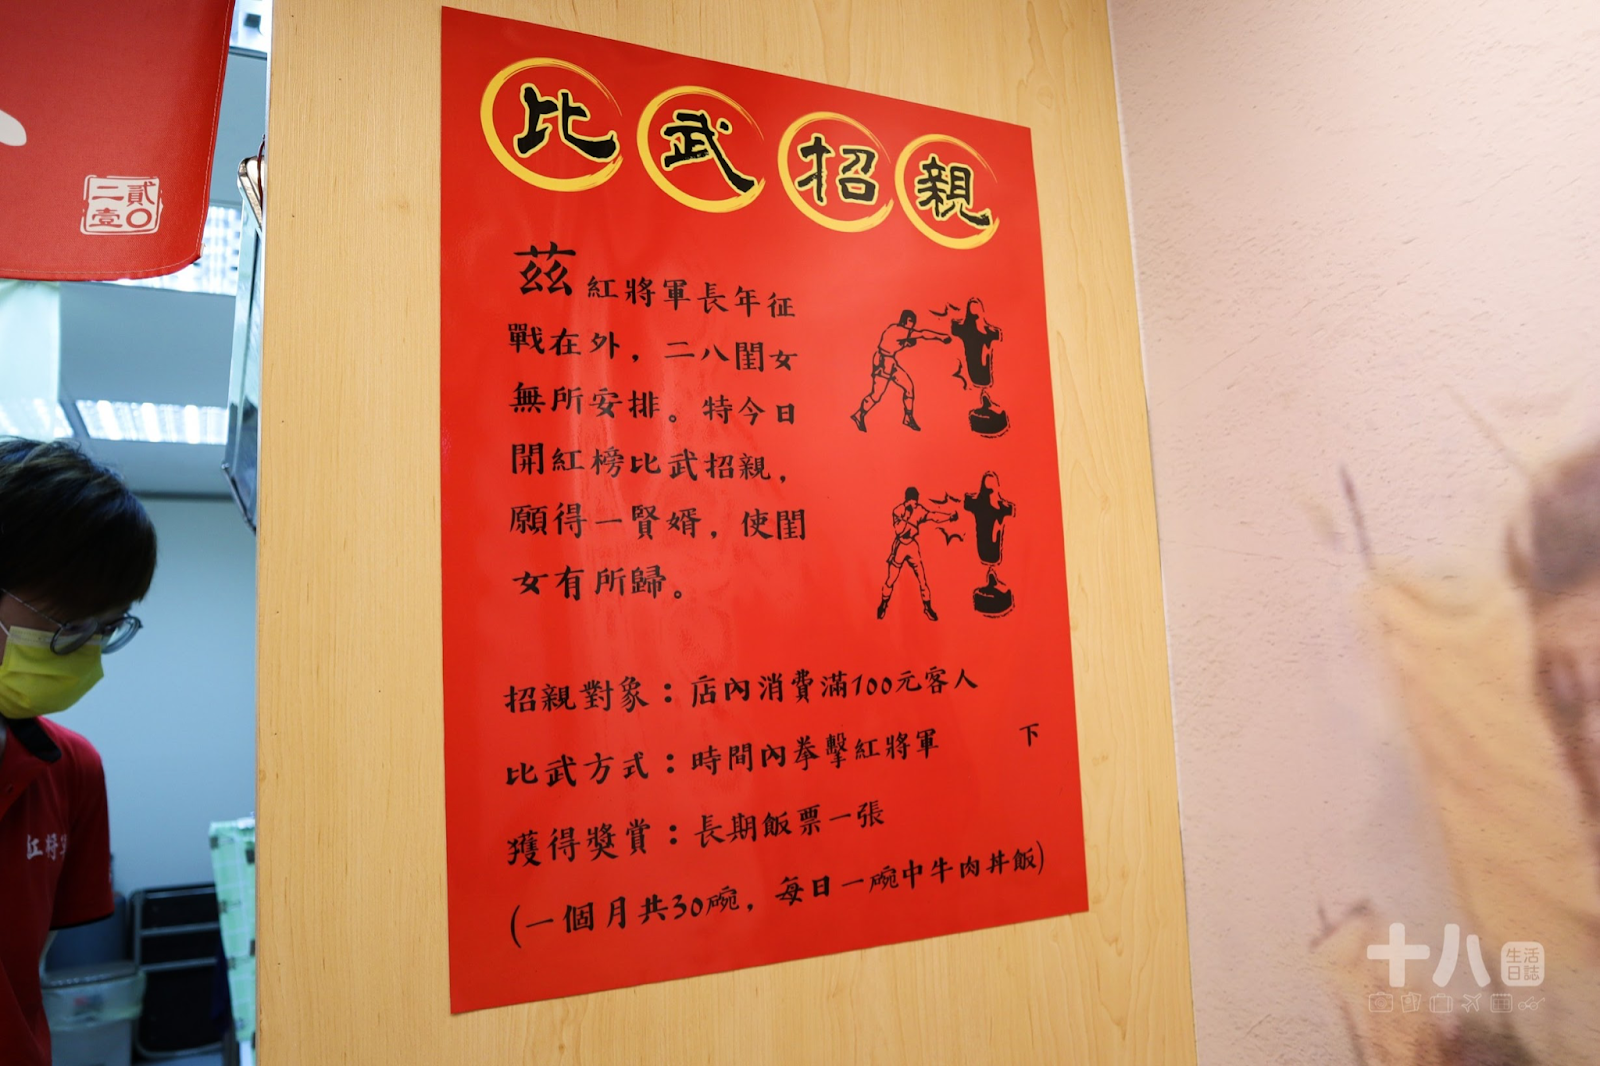 比武招親
茲紅將軍長年征
戰在外，二八閨女
無所安排。特今日
開紅榜比武招親，
願得一賢婿，使閨
女有所歸。
招親對象：店內消費滿100元客人
比武方式：時間內拳擊紅將軍 下
獲得獎賞：長期飯票一張
(一個月共30碗，每日一碗中牛肉丼飯)
二貳
壹〇
紅將軍
十八
生活
日誌